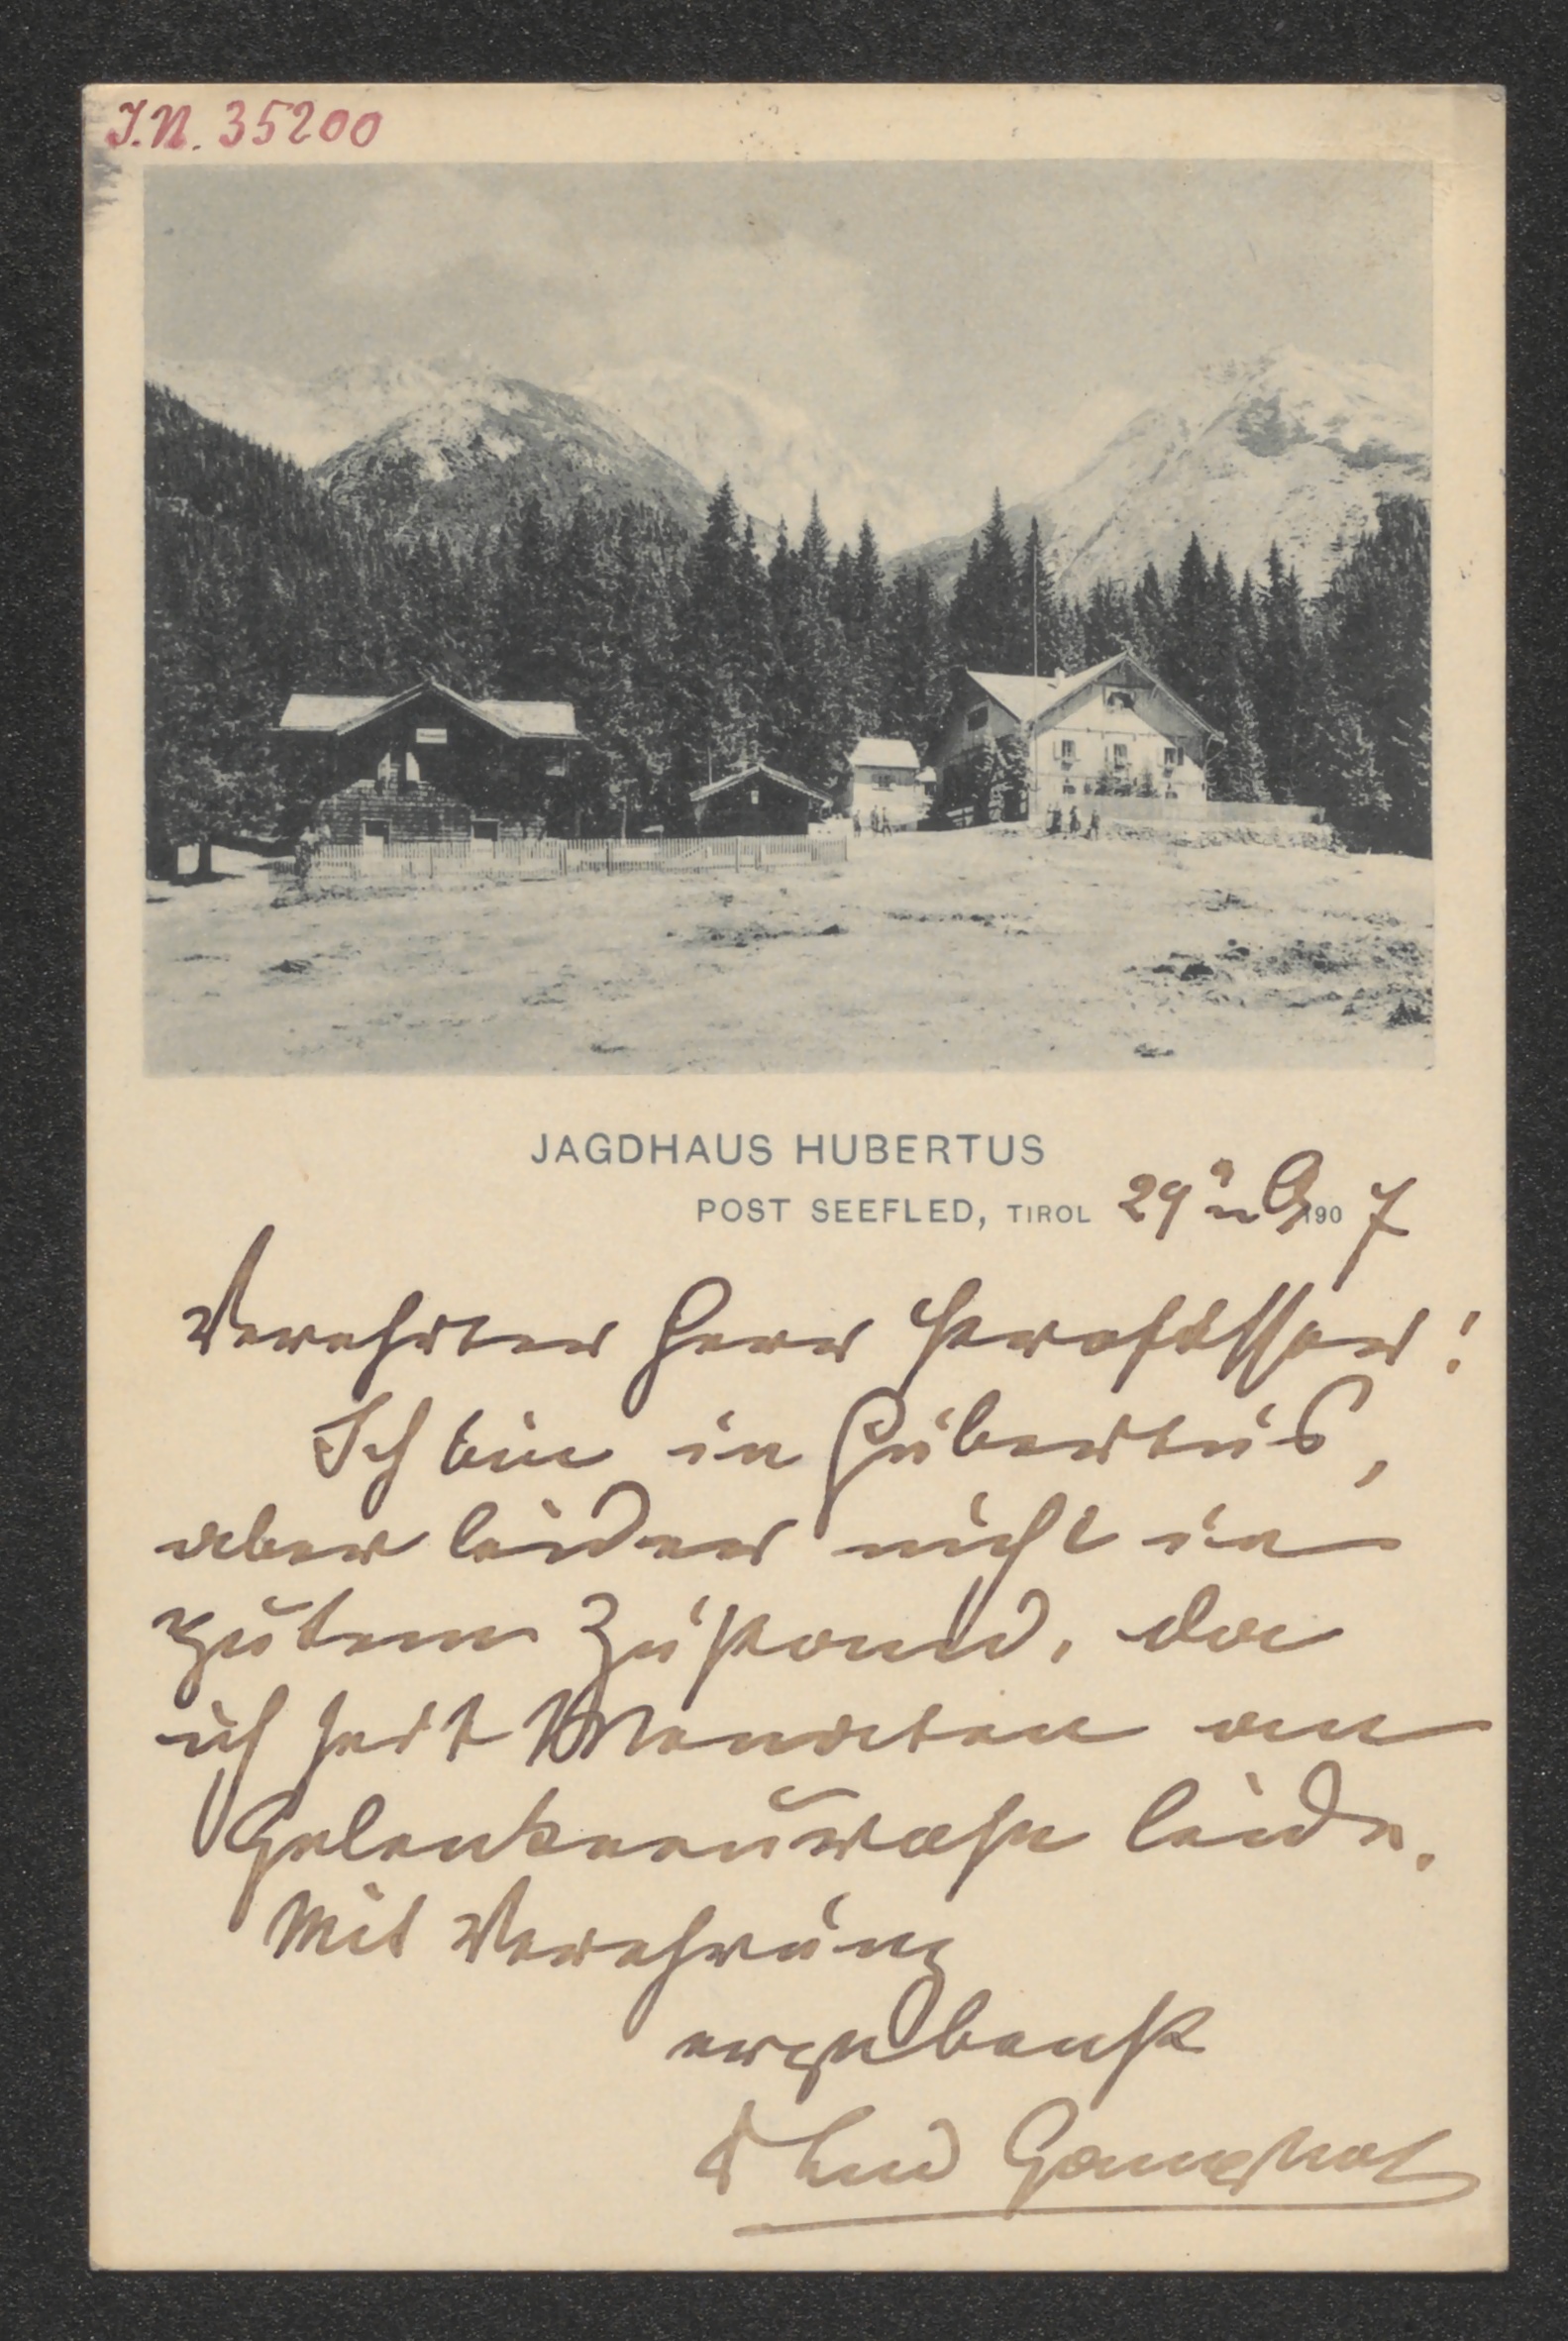 I.N. 35200
JAGDHAUS HUBERTUS
POST SEEFLED, TIROL 29 190 7
Verehrter Herr Professor!
Ich bin in Hubertus,
aber leider nicht in
gutem Zustand, da
ich seit Monaten an
leide.
Mit Verehrung
ergebenst
Ganghof